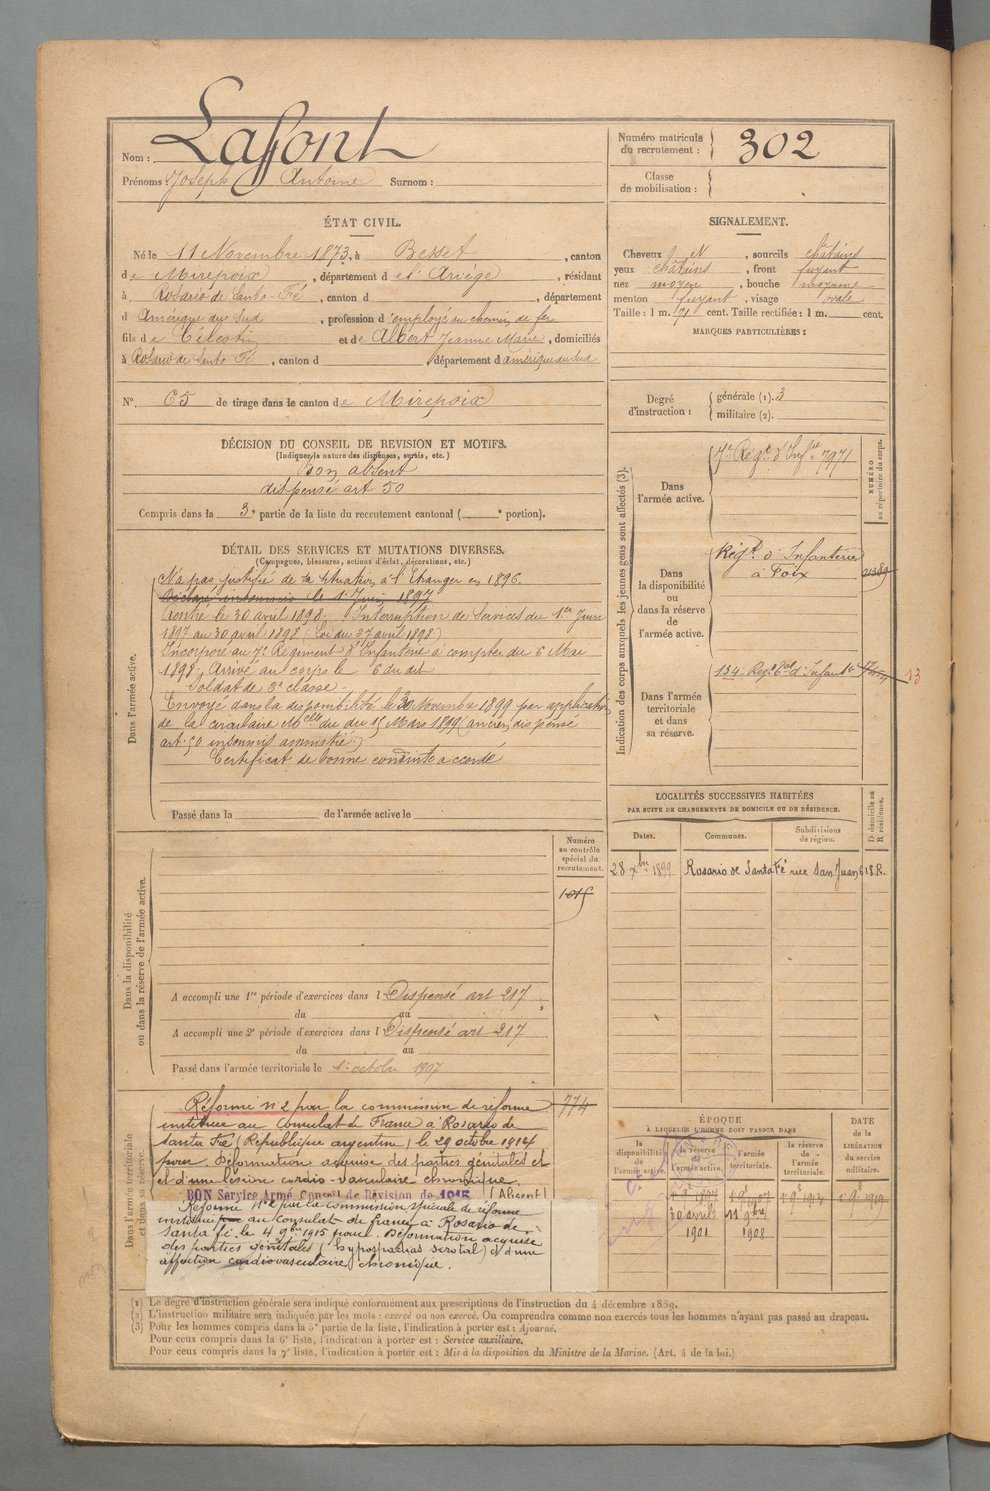 Nom : Lafont
Prénoms : Joseph Antoine Surnom :
Numéro matricule du recrutement : 302
Classe de mobilisation :
ÉTAT CIVIL.
Né le 11 Novembre 1873, à Besset, canton
de Mirepoix, département de l'Ariège, résidant
à Rosario de Santa-Fé, canton d , département
d Amérique du Sud, profession d'employé au chemin de fer
fils de Célestin et de Albert Jeanne Marie, domiciliés
à Rosario de Santa Fé, canton d département d Amérique du Sud
N° 65 de tirage dans le canton de Mirepoix
SIGNALEMENT.
Cheveux N, sourcils châtains
yeux châtains, front fuyant
nez moyen, bouche moyenne
menton fuyant, visage ovale
Taille : 1 m. 71 cent. Taille rectifiée : 1 m. cent.
MARQUES PARTICULIÈRES :
Degré d'instruction : générale (1). 3
militaire (2).
DÉCISION DU CONSEIL DE REVISION ET MOTIFS.
(Indiquer la nature des dispenses, sursis, etc.)
Bon absent
dispensé art 50
Compris dans la 3e partie de la liste du recrutement cantonal ( e portion).
DÉTAIL DES SERVICES ET MUTATIONS DIVERSES.
(Campagnes, blessures, actions d'éclat, décorations, etc.)
Dans l'armée active.
N'a pas justifié de sa situation à l'Etranger en 1896.
Déclaré insoumis le 1er Juin 1897
Rentré le 30 avril 1898. Interruption de services du 1er Juin
1897 au 30 avril 1898 (Loi du 27 avril 1898)
Incorporé au 7e Régiment d'Infanterie à compter du 6 Mai
1898. Arrivé au corps le 6 du dit
Soldat de 2e classe.
Envoyé dans la disponibilité le 30 Novembre 1899 par application
de la circulaire Melle du du 15 Mars 1899 (ancien dispensé
art. 50 insoumis amnistié)
Certificat de bonne conduite accordé
Passé dans la de l'armée active le
Indication des corps auxquels les jeunes gens sont affectés (3).
NUMÉRO au répertoire du corps.
Dans l'armée active.
7e Régt d'Infie 7971
Dans la disponibilité ou dans la réserve de l'armée active.
Régt. d'Infanterie
à Foix
Dans l'armée territoriale et dans sa réserve.
134e Régt Tal d'Infanie 13
LOCALITÉS SUCCESSIVES HABITÉES
PAR SUITE DE CHANGEMENTS DE DOMICILE OU DE RÉSIDENCE.
Dates. Communes. Subdivisions de région. D. domicile ou R. résidence.
28 Xbre 1899 Rosario de Santa Fé rue San Juan 618 R.
Dans la disponibilité ou dans la réserve de l'armée active.
Numéro au contrôle spécial du recrutement.
1015
A accompli une 1re période d'exercices dans l Dispensé art 217
du au
A accompli une 2e période d'exercices dans l Dispensé art 217
du au
Passé dans l'armée territoriale le 1er octobre 1907
Dans l'armée territoriale et dans sa réserve.
774
Réformé n° 2 par la commission de réforme
instituée au Consulat de France à Rosario de
Santa Fé (République argentine) le 29 octobre 1914
pour. Déformation acquise des parties génitales et
et d'une lésion cordio-vasculaire chronique.
BON Service Armé Conseil de Révision de 1915 (Absent)
Réformé N° 2 par la commission spéciale de réforme
instituée au Consulat de france à Rosario de
Santa fé, le 4 9bre 1915 pour. Déformation acquise
des parties génitales (hypospadias scrotal) et d'une
affection cardiovasculaire chronique.
ÉPOQUE
À LAQUELLE L'HOMME DOIT PASSER DANS
la disponibilité de l'armée active. la réserve de l'armée active. l'armée territoriale. la réserve de l'armée territoriale.
DATE de la LIBÉRATION du service militaire.
1er 9e 1897 1er 9e 1907 1er 9e 1913 1er 9e 1919
30 avril 11 9bre
1901 1908
(1) Le degré d'instruction générale sera indiqué conformément aux prescriptions de l'instruction du 4 décembre 1889.
(2) L'instruction militaire sera indiquée par les mots : exercé ou non exercé. On comprendra comme non exercés tous les hommes n'ayant pas passé au drapeau.
(3) Pour les hommes compris dans la 5e partie de la liste, l'indication à porter est : Ajourné.
Pour ceux compris dans la 6e liste, l'indication à porter est : Service auxiliaire.
Pour ceux compris dans la 7e liste, l'indication à porter est : Mis à la disposition du Ministre de la Marine. (Art. 4 de la loi.)